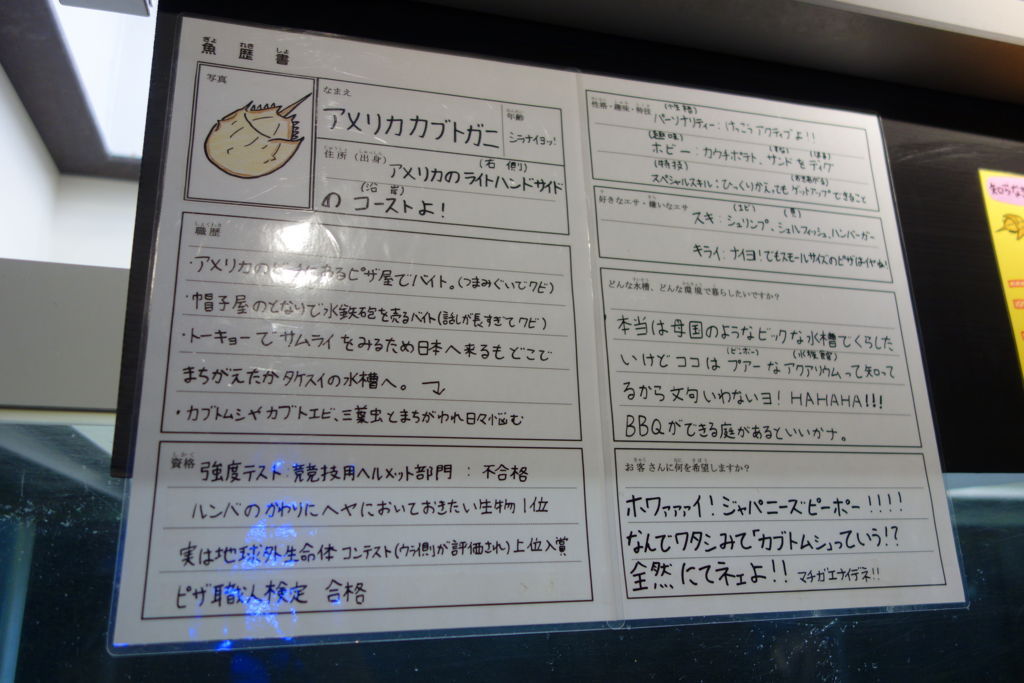 ぎょ れき しょ
魚歴書
写真
なまえ
アメリカカブトガニ
年齢
シラナイヨッ!
住所(出身) (右側)
アメリカのライトハンドサイド
(沿岸)
の コーストよ!
しょくれき
職歴
・アメリカのビーチにあるピザ屋でバイト。(つまみぐいでクビ)
・帽子屋のとなりで水鉄砲を売るバイト(話しが長すぎてクビ)
・トーキョーでサムライをみるため日本へ来るもどこで
まちがえたかタケスイの水槽へ。
・カブトムシやカブトエビ、三葉虫とまちがわれ日々悩む
しかく
資格 強度テスト:競技用ヘルメット部門 : 不合格
ルンバのかわりにヘヤにおいておきたい生物1位
実は地球外生命体コンテスト(ウラ側が評価され)上位入賞
ピザ職人検定 合格
性格・趣味・特技 (性格)
パーソナリティー:けっこうアクティブよ!!
(趣味) (すな) (ほる)
ホビー:カウチポテト、サンドをディグ
(特技) (おきあがる)
スペシャルスキル:ひっくりかえってもゲットアップできること
好きなエサ・嫌いなエサ (エビ) (貝)
スキ:シュリンプ、シェルフィッシュ、ハンバーガー
キライ:ナイヨ!でもスモールサイズのピザはイヤね!
どんな水槽、どんな環境で暮らしたいですか?
本当は母国のようなビックな水槽でくらした
(ビンボー) (水族館)
いけどココはプアーなアクアリウムって知って
るから文句いわないヨ! HAHAHA!!!
BBQができる庭があるといいかナ。
お客さんに何を希望しますか?
ホワァァァイ!ジャパニーズピーポー!!!!
なんでワタシみて「カブトムシ」っていう!?
全然にてネェよ!! マチガエナイデネ!!
知らな